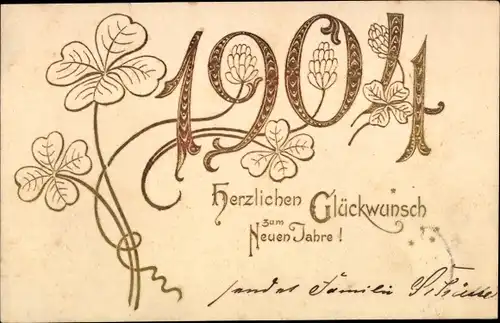 1904
Herzlichen Glückwunsch
zum
Neuen Jahre!
sendet Familie